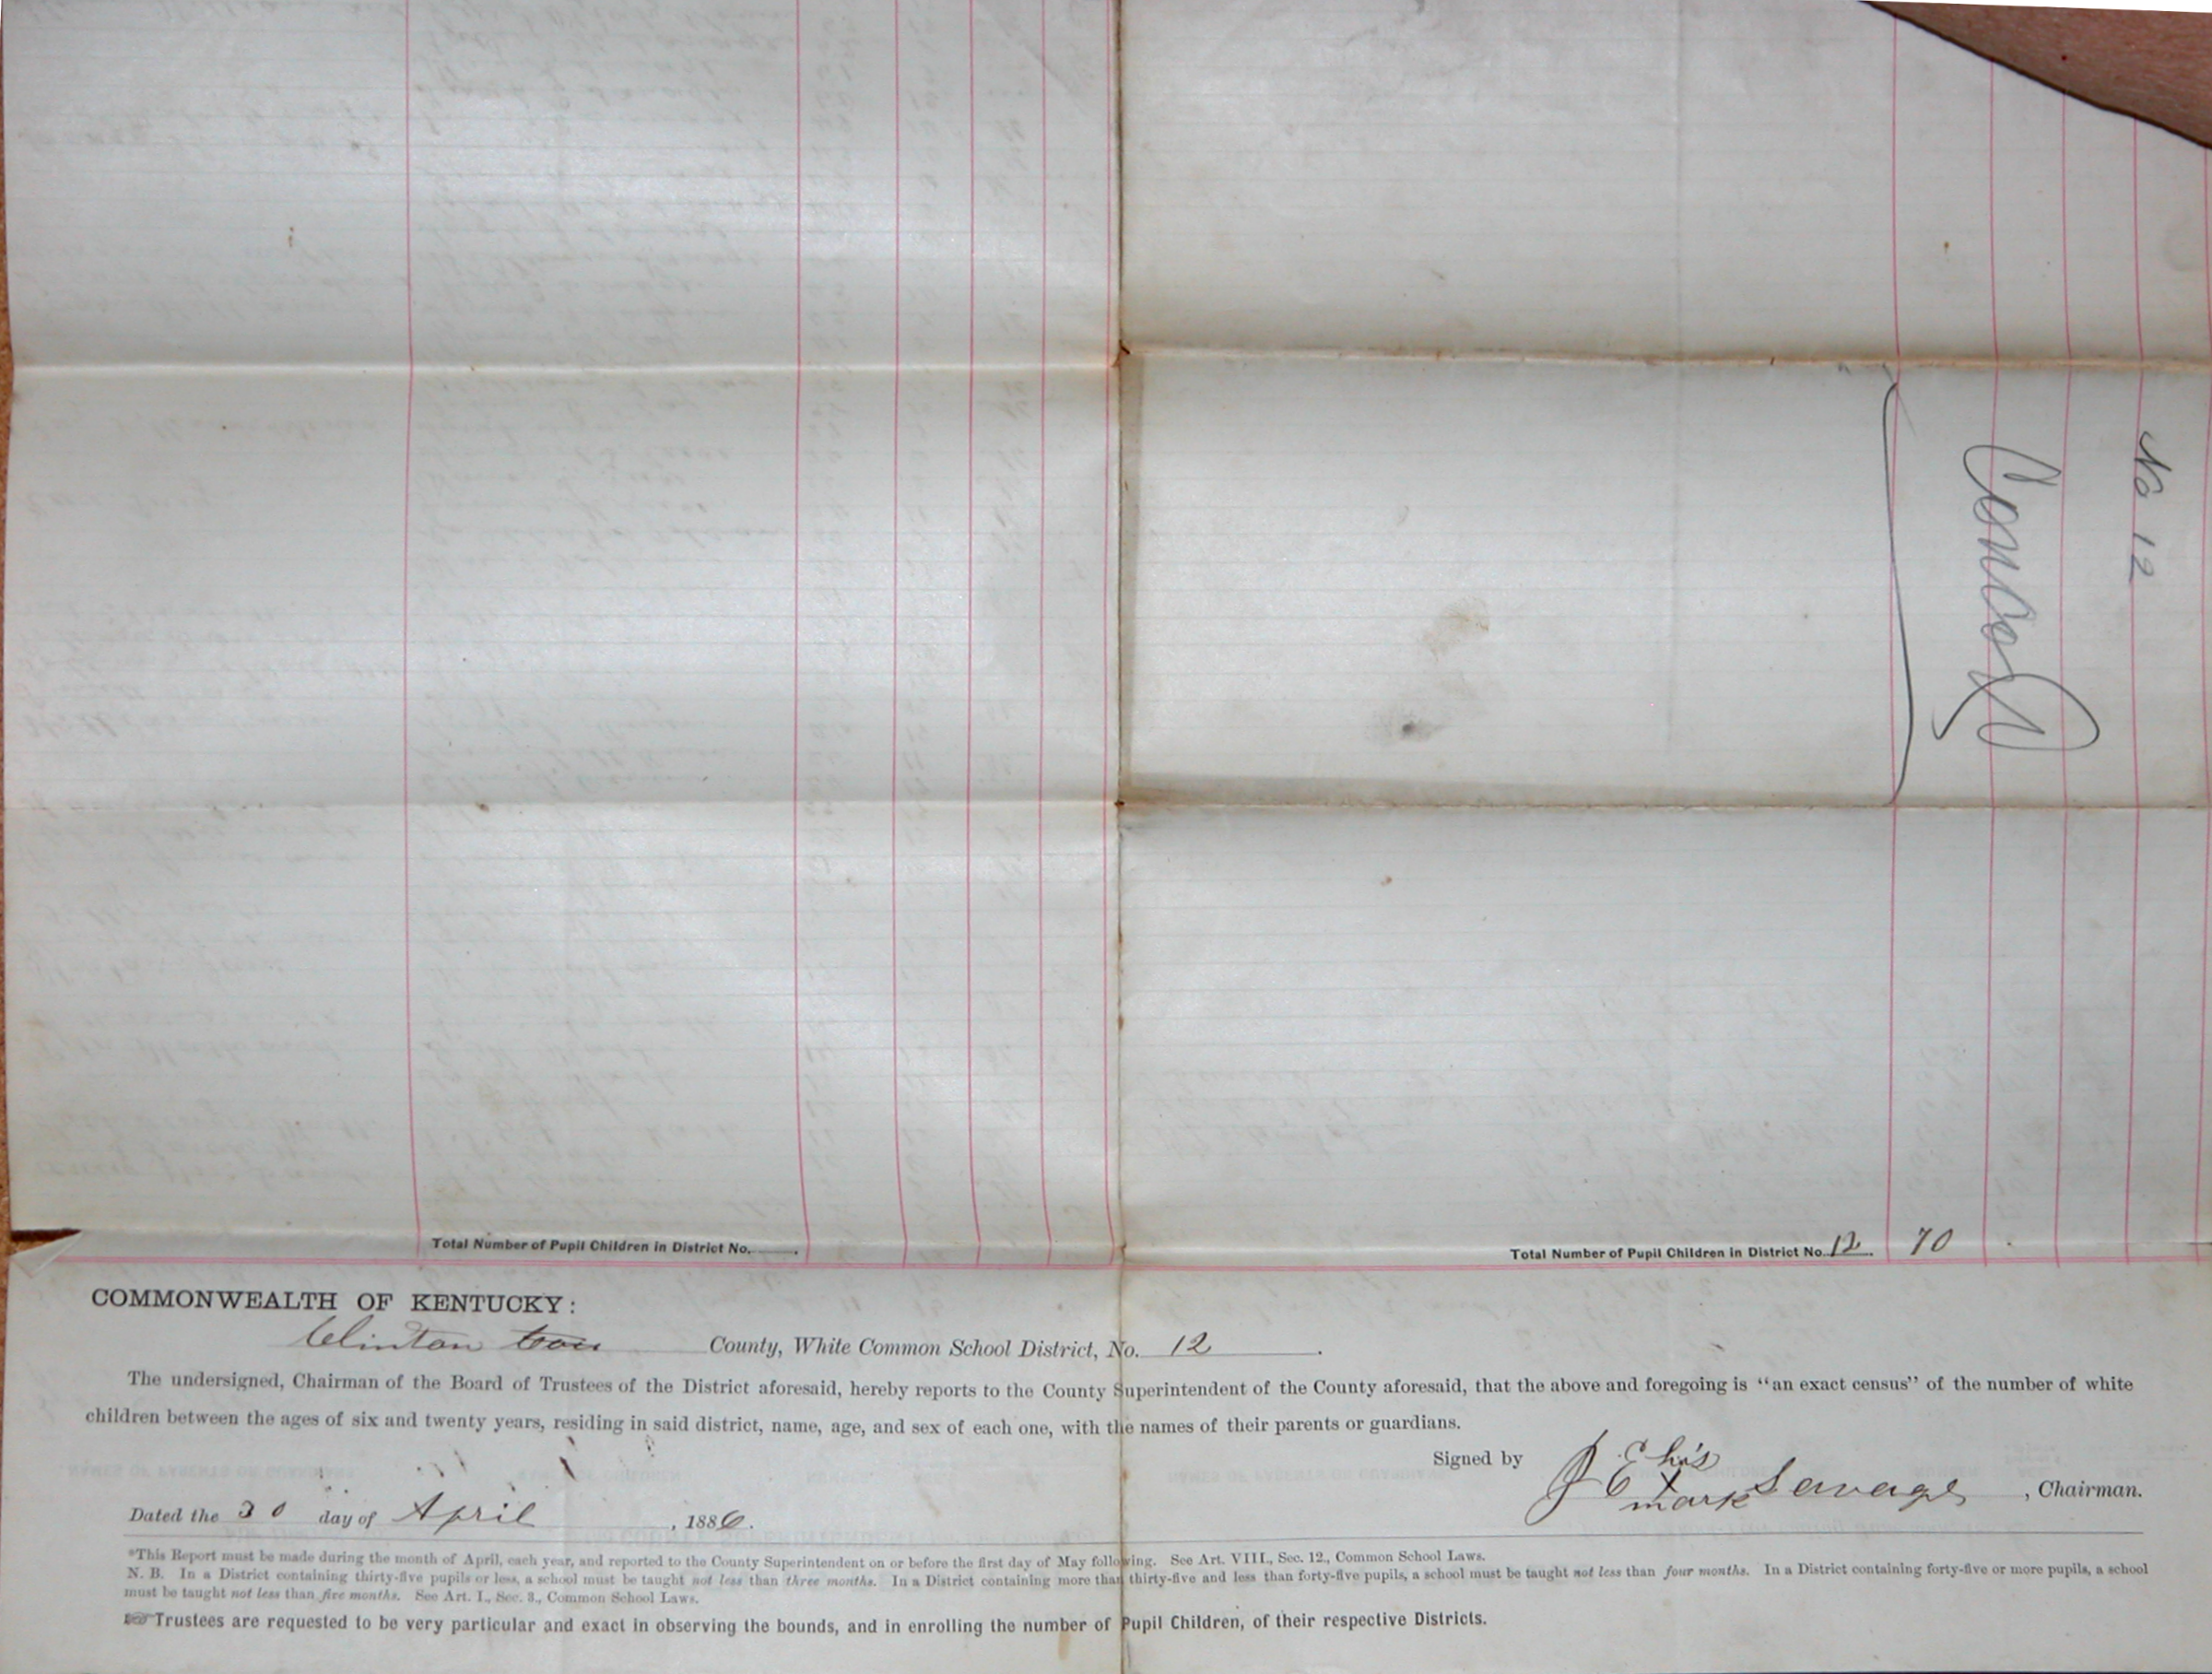 No 12
Total Number of Pupil Children in District No. .
Total Number of Pupil Children in District No. 12. 70
COMMONWEALTH OF KENTUCKY:
Clinton Cou County, White Common School District, No. 12 .
The undersigned, Chairman of the Board of Trustees of the District aforesaid, hereby reports to the County Superintendent of the County aforesaid, that the above and foregoing is "an exact census" of the number of white
children between the ages of six and twenty years, residing in said district, name, age, and sex of each one, with the names of their parents or guardians.
Signed by J E his X mark Savage, Chairman.
Dated the 30 day of April, 1886.
*This Report must be made during the month of April, each year, and reported to the County Superintendent on or before the first day of May following. See Art. VIII., Sec. 12., Common School Laws.
N. B. In a District containing thirty-five pupils or less, a school must be taught not less than three months. In a District containing more than thirty-five and less than forty-five pupils, a school must be taught not less than four months. In a District containing forty-five or more pupils, a school
must be taught not less than five months. See Art. I., Sec. 3., Common School Laws.
☞Trustees are requested to be very particular and exact in observing the bounds, and in enrolling the number of Pupil Children, of their respective Districts.